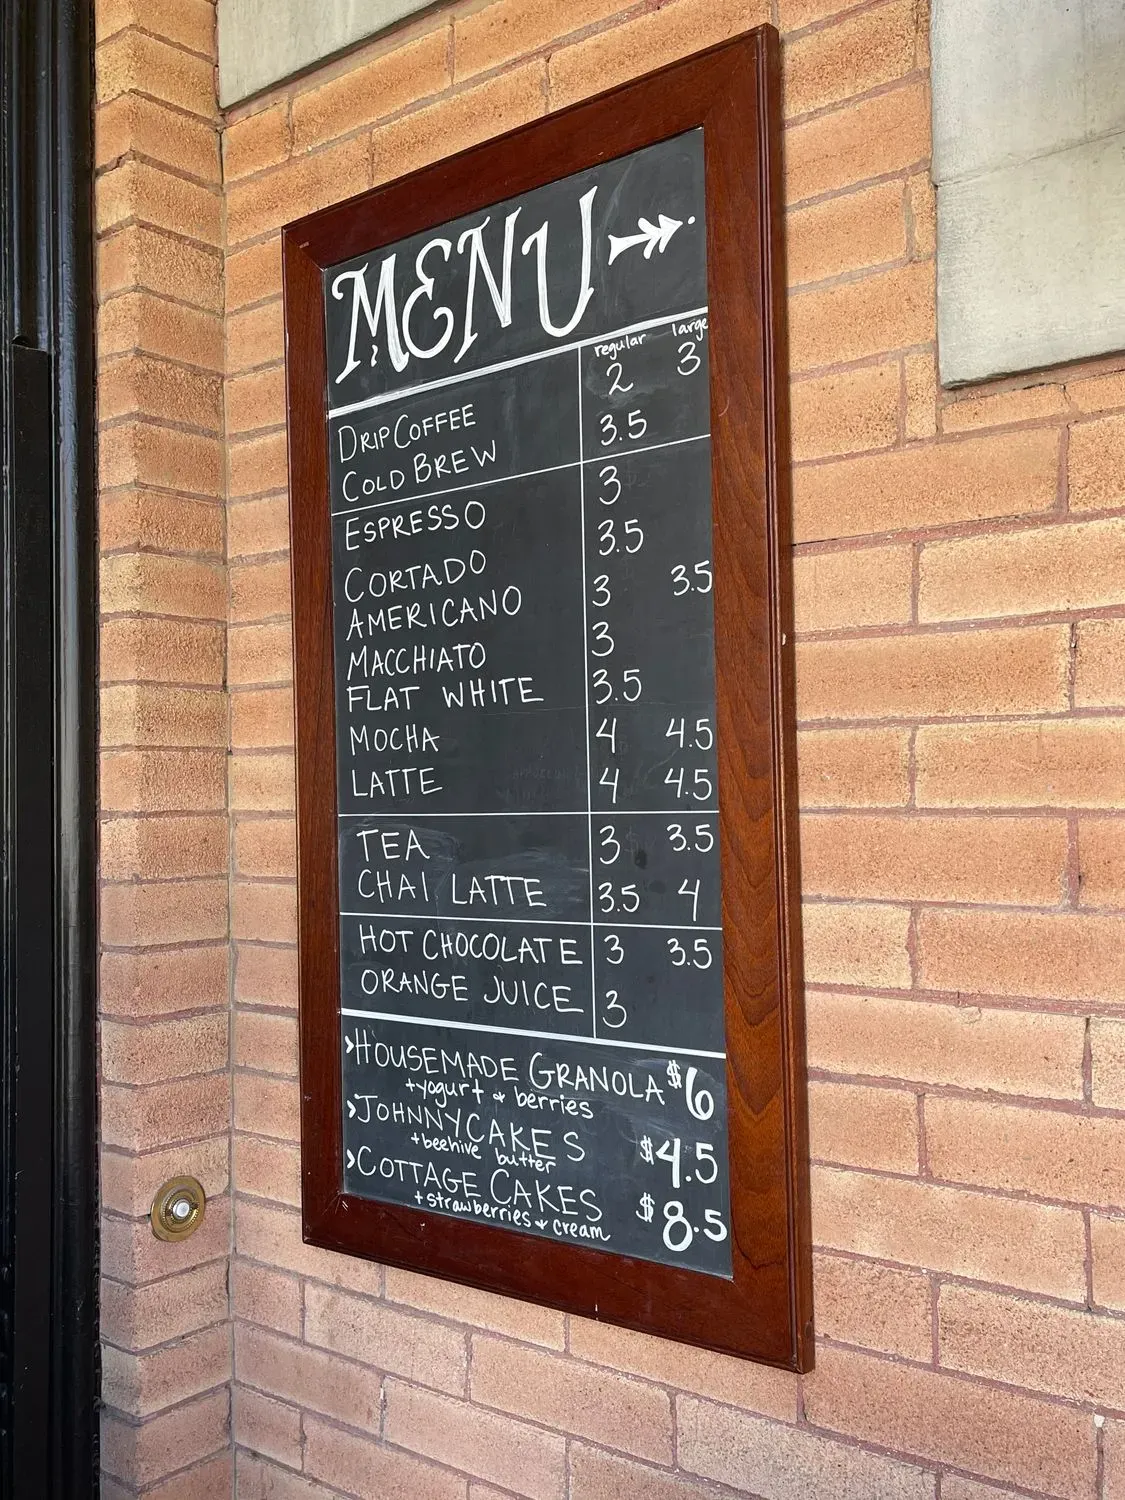 MENU
regular large
DRIP COFFEE 2 3
COLD BREW 3.5
ESPRESSO 3
CORTADO 3.5
AMERICANO 3 3.5
MACCHIATO 3
FLAT WHITE 3.5
MOCHA 4 4.5
LATTE 4 4.5
TEA 3 3.5
CHAI LATTE 3.5 4
HOT CHOCOLATE 3 3.5
ORANGE JUICE 3
>HOUSEMADE GRANOLA $6
+yogurt & berries
>JOHNNYCAKES $4.5
+beehive butter
>COTTAGE CAKES $8.5
+strawberries & cream